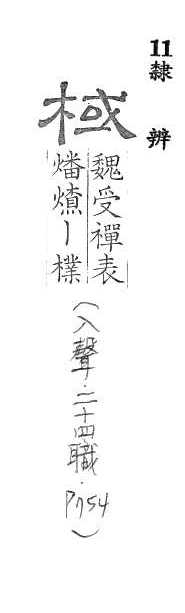 11隸辨
棫
魏受禪表
燔燎丨樸
(入聲·二十四職·P754)